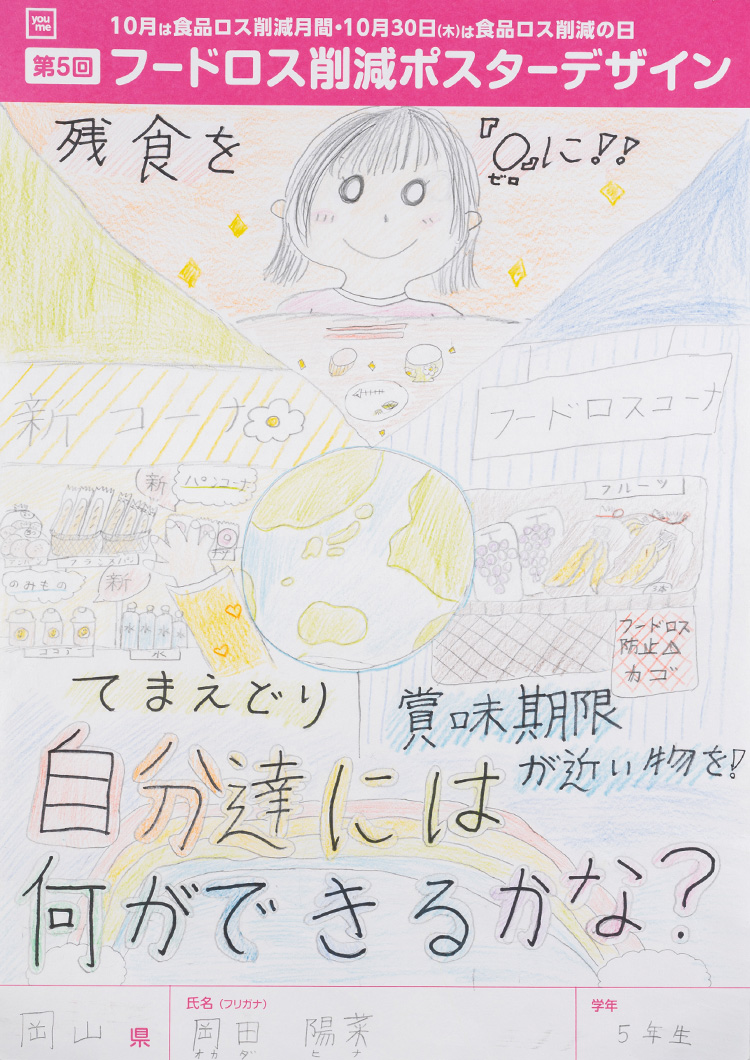 you me
10月は食品ロス削減月間・10月30日(木)は食品ロス削減の日
第5回 フードロス削減ポスターデザイン
残食を『0』に!!
ゼロ
新コーナ
フードロスコーナ
新
パンコーナ
フルーツ
フランスパン
のみもの
新
水 水 水 水
ココア
水
フードロス
防止
カゴ
てまえどり
賞味期限
が近い物を!
自分達には
何ができるかな?
岡山県
氏名(フリガナ)
岡田 陽菜
オカダ ヒナ
学年
5年生